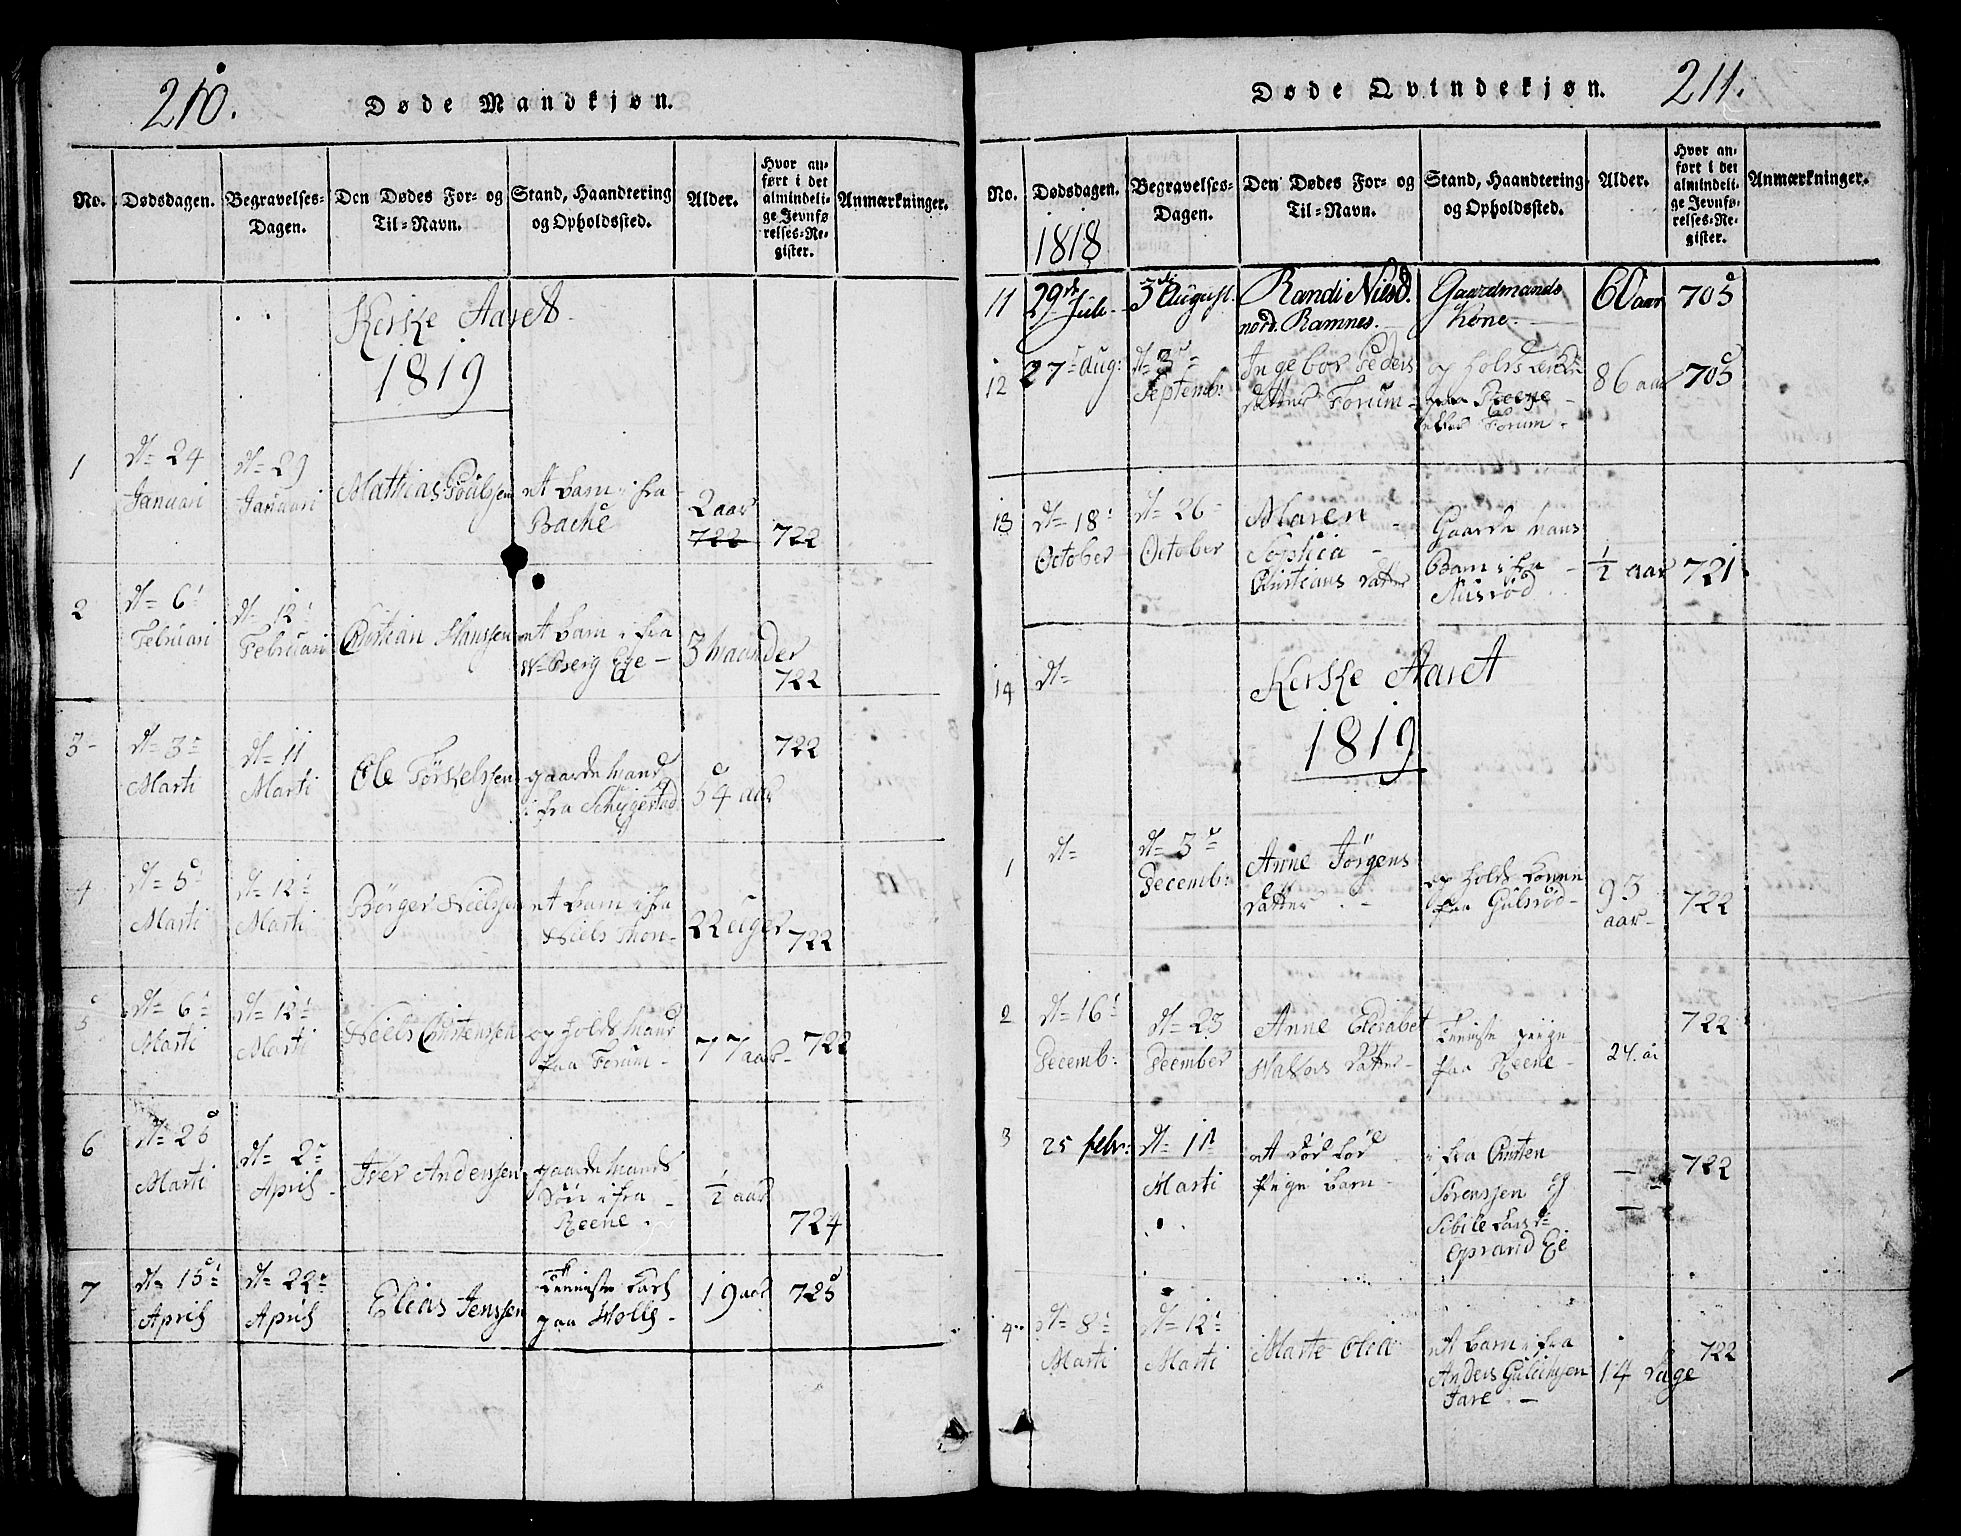 210.
Døde Mandkjøn.
No. Dødsdagen. Begravelses-Dagen. Den Dødes For- og Til-Navn. Stand, Haandtering og Opholdssted. Alder. Hvor anført i det almindelige Jevnførelses-Register. Anmærkninger.
Kerske Aaret
1819
1 d= 24 Januari d= 29 Januari Mathias Poulssen et barn i fra Backe 2 aar 722 722
2 d= 6 Februari d= 12 Februari Christian Hanssen et barn i fra Berg Eje 3 maander 722
3 d= 3 Marti d= 11 Marti Ole Tørkelssen gaardemand i fra 54 aar 722
4 d= 5 Marti d= 12 Marti Børger Nielssen et barn i fra Niels Thon- 2 Uger 722
5 d= 6 Marti d= 12 Marti Niels Christenssen op holds mand paa Forum- 77 aar- 722
6 d= 25 Marti d= 2 April Iver Anderssen gaardemands Søn i fra Reene 1/2 aar 724
7 d= 15 April d= 22 April Elias Jenssen paa Holle- 19 aar 725
211.
Døde Qvindekjøn.
No. Dødsdagen. Begravelses-Dagen. Den Dødes For- og Til-Navn. Stand, Haandtering og Opholdssted. Alder. Hvor anført i det almindelige Jevnførelses-Register. Anmærkninger.
1818
11 29de Jule- 3di August. Randi Nilsd. nord. Ramnes. Gaardmands Kone. 60 aar 705
12 27 Aug: d= 3 Septemb: Ingebor Peders datter Forum- op holds paa Reene Forum. 86 aar 705
13 d= 18 October d= 26 October Maren Sophia Christians datter Gaarde mans Barn i fra 1/2 aar 721
14 d=
Kerske Aaret
1819
1 d= d= 5 Decemb: Anne Jørgens datter op holds paa Gulsrød- 93 aar- 722
2 d= 16 Decemb: d= 23 Deember Anne Elisabet datter- paa Reene- 24. år 722
3 25 febr: d= 1st Marti et død fød Pige barn- i fra Christen Sørenssen og Eje — — 722
4 d= 8 Marti d= 12 Marti Marte Olia et barn i fra Anders 14 Dage 722